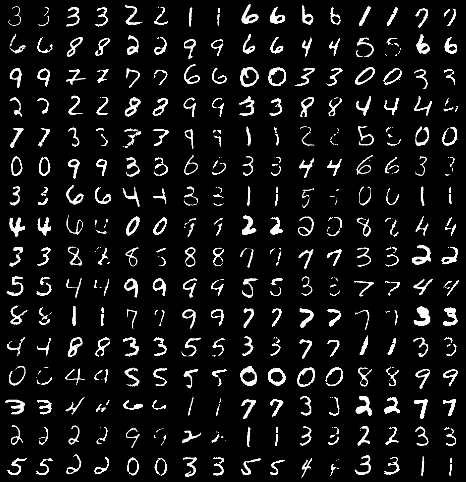 3 3 3 3 2 2 1 1 6 6 6 6 1 1 7 7
6 6 8 8 2 2 9 9 6 6 4 4 5 5 6 6
9 9 7 7 7 7 6 6 0 0 3 3 0 0 3 3
2 2 2 2 8 8 9 9 3 3 8 8 4 4 4
7 7 3 3 3 3 9 9 1 1 2 5 5 0 0
0 0 9 9 3 3 6 6 3 3 4 4 6 6 3 3
3 3 6 6 4 4 3 3 1 1 5 0 0 1 1
4 4 6 0 0 9 9 2 2 2 8 4 4
3 3 8 8 8 8 8 7 7 7 7 3 3 2 2
5 5 4 4 9 9 9 9 5 5 3 3 7 7 4 4
8 8 1 1 7 7 9 9 7 7 7 7 7 7 3 3
4 4 8 8 3 3 5 5 3 3 7 7 1 1 3 3
0 0 4 4 5 5 5 5 0 0 0 0 8 8 9 9
3 3 4 4 6 6 1 1 7 7 3 3 2 2 7 7
2 2 2 2 9 9 2 1 1 3 3 2 2 3 3
5 5 2 2 0 0 3 3 5 5 4 3 3 1 1